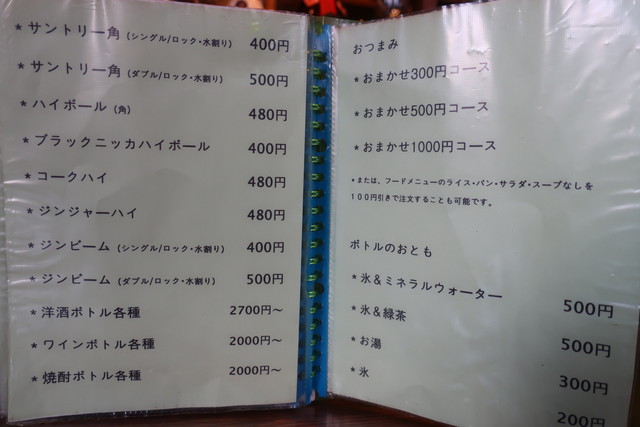 * サントリー角 (シングル/ロック・水割り) 400円
* サントリー角 (ダブル/ロック・水割り) 500円
* ハイボール (角) 480円
* ブラックニッカハイボール 400円
* コークハイ 480円
* ジンジャーハイ 480円
* ジンビーム (シングル/ロック・水割り) 400円
* ジンビーム (ダブル/ロック・水割り) 500円
* 洋酒ボトル各種 2700円~
* ワインボトル各種 2000円~
* 焼酎ボトル各種 2000円~
おつまみ
* おまかせ300円コース
* おまかせ500円コース
* おまかせ1000円コース
* または、フードメニューのライス・パン・サラダ・スープなしを
100円引きで注文することも可能です。
ボトルのおとも
* 氷&ミネラルウォーター 500円
* 氷&緑茶 500円
* お湯 300円
* 氷 200円